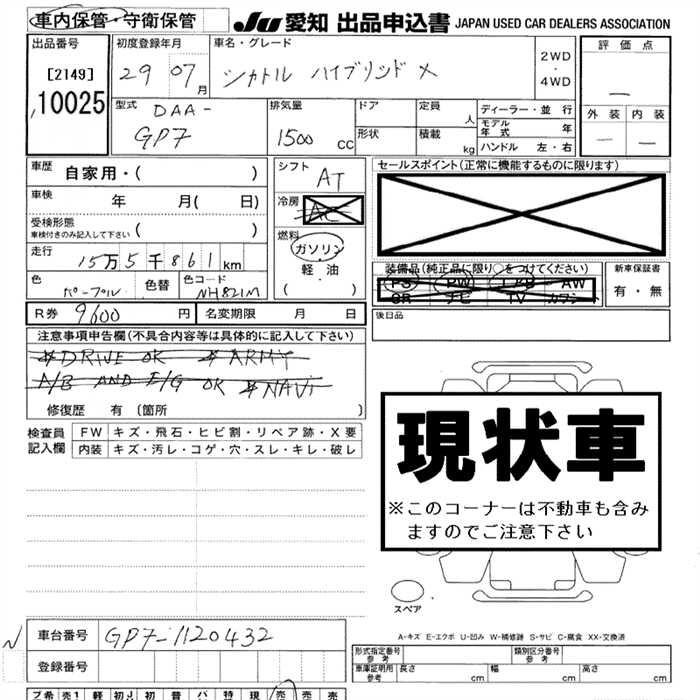 車内保管・守衛保管
JU 愛知 出品申込書 JAPAN USED CAR DEALERS ASSOCIATION
出品番号
[2149]
10025
初度登録年月
29 07月
車名・グレード
シャトル ハイブリッド X
2WD
・
4WD
評価点
外装 内装
型式
DAA-
GP7
排気量
1500 CC
ドア
形状
定員 人
積載 kg
ディーラー・並行
モデル年式 年
ハンドル 左・右
車歴
自家用・( )
車検 年 月( 日)
受検形態
車検付きのみ記入して下さい ・( )
走行
15万5千861km
色
パープル
色替
色コード
NH821M
シフト
AT
冷房
AC
燃料
ガソリン
軽油
( )
セールスポイント(正常に機能するものに限ります)
装備品(純正品に限り○をつけてください)
PS PW AW
SR ナビ TV カワシート
新車保証書
有・無
後日品
R券 9600円
名変期限 月 日
注意事項申告欄(不具合内容等は具体的に記入して下さい)
#DRIVE OK #ARMY
A/B AND E/G OK #NAVi
修復歴 有〔箇所 〕
検査員記入欄
FW キズ・飛石・ヒビ割・リペア跡・X要
内装 キズ・汚レ・コゲ・穴・スレ・キレ・破レ
現状車
※このコーナーは不動車も含み
ますのでご注意下さい
スペア
A-キズ E-エクボ U-凹み W-補修跡 S-サビ C-腐食 XX-交換済
N
車台番号 GP7-1120432
登録番号
形式指定番号
参考
類別区分番号
参考
車庫証明用
参考
長さ cm 幅 cm 高さ cm
プ希売1軽初J初普パ特現売売売